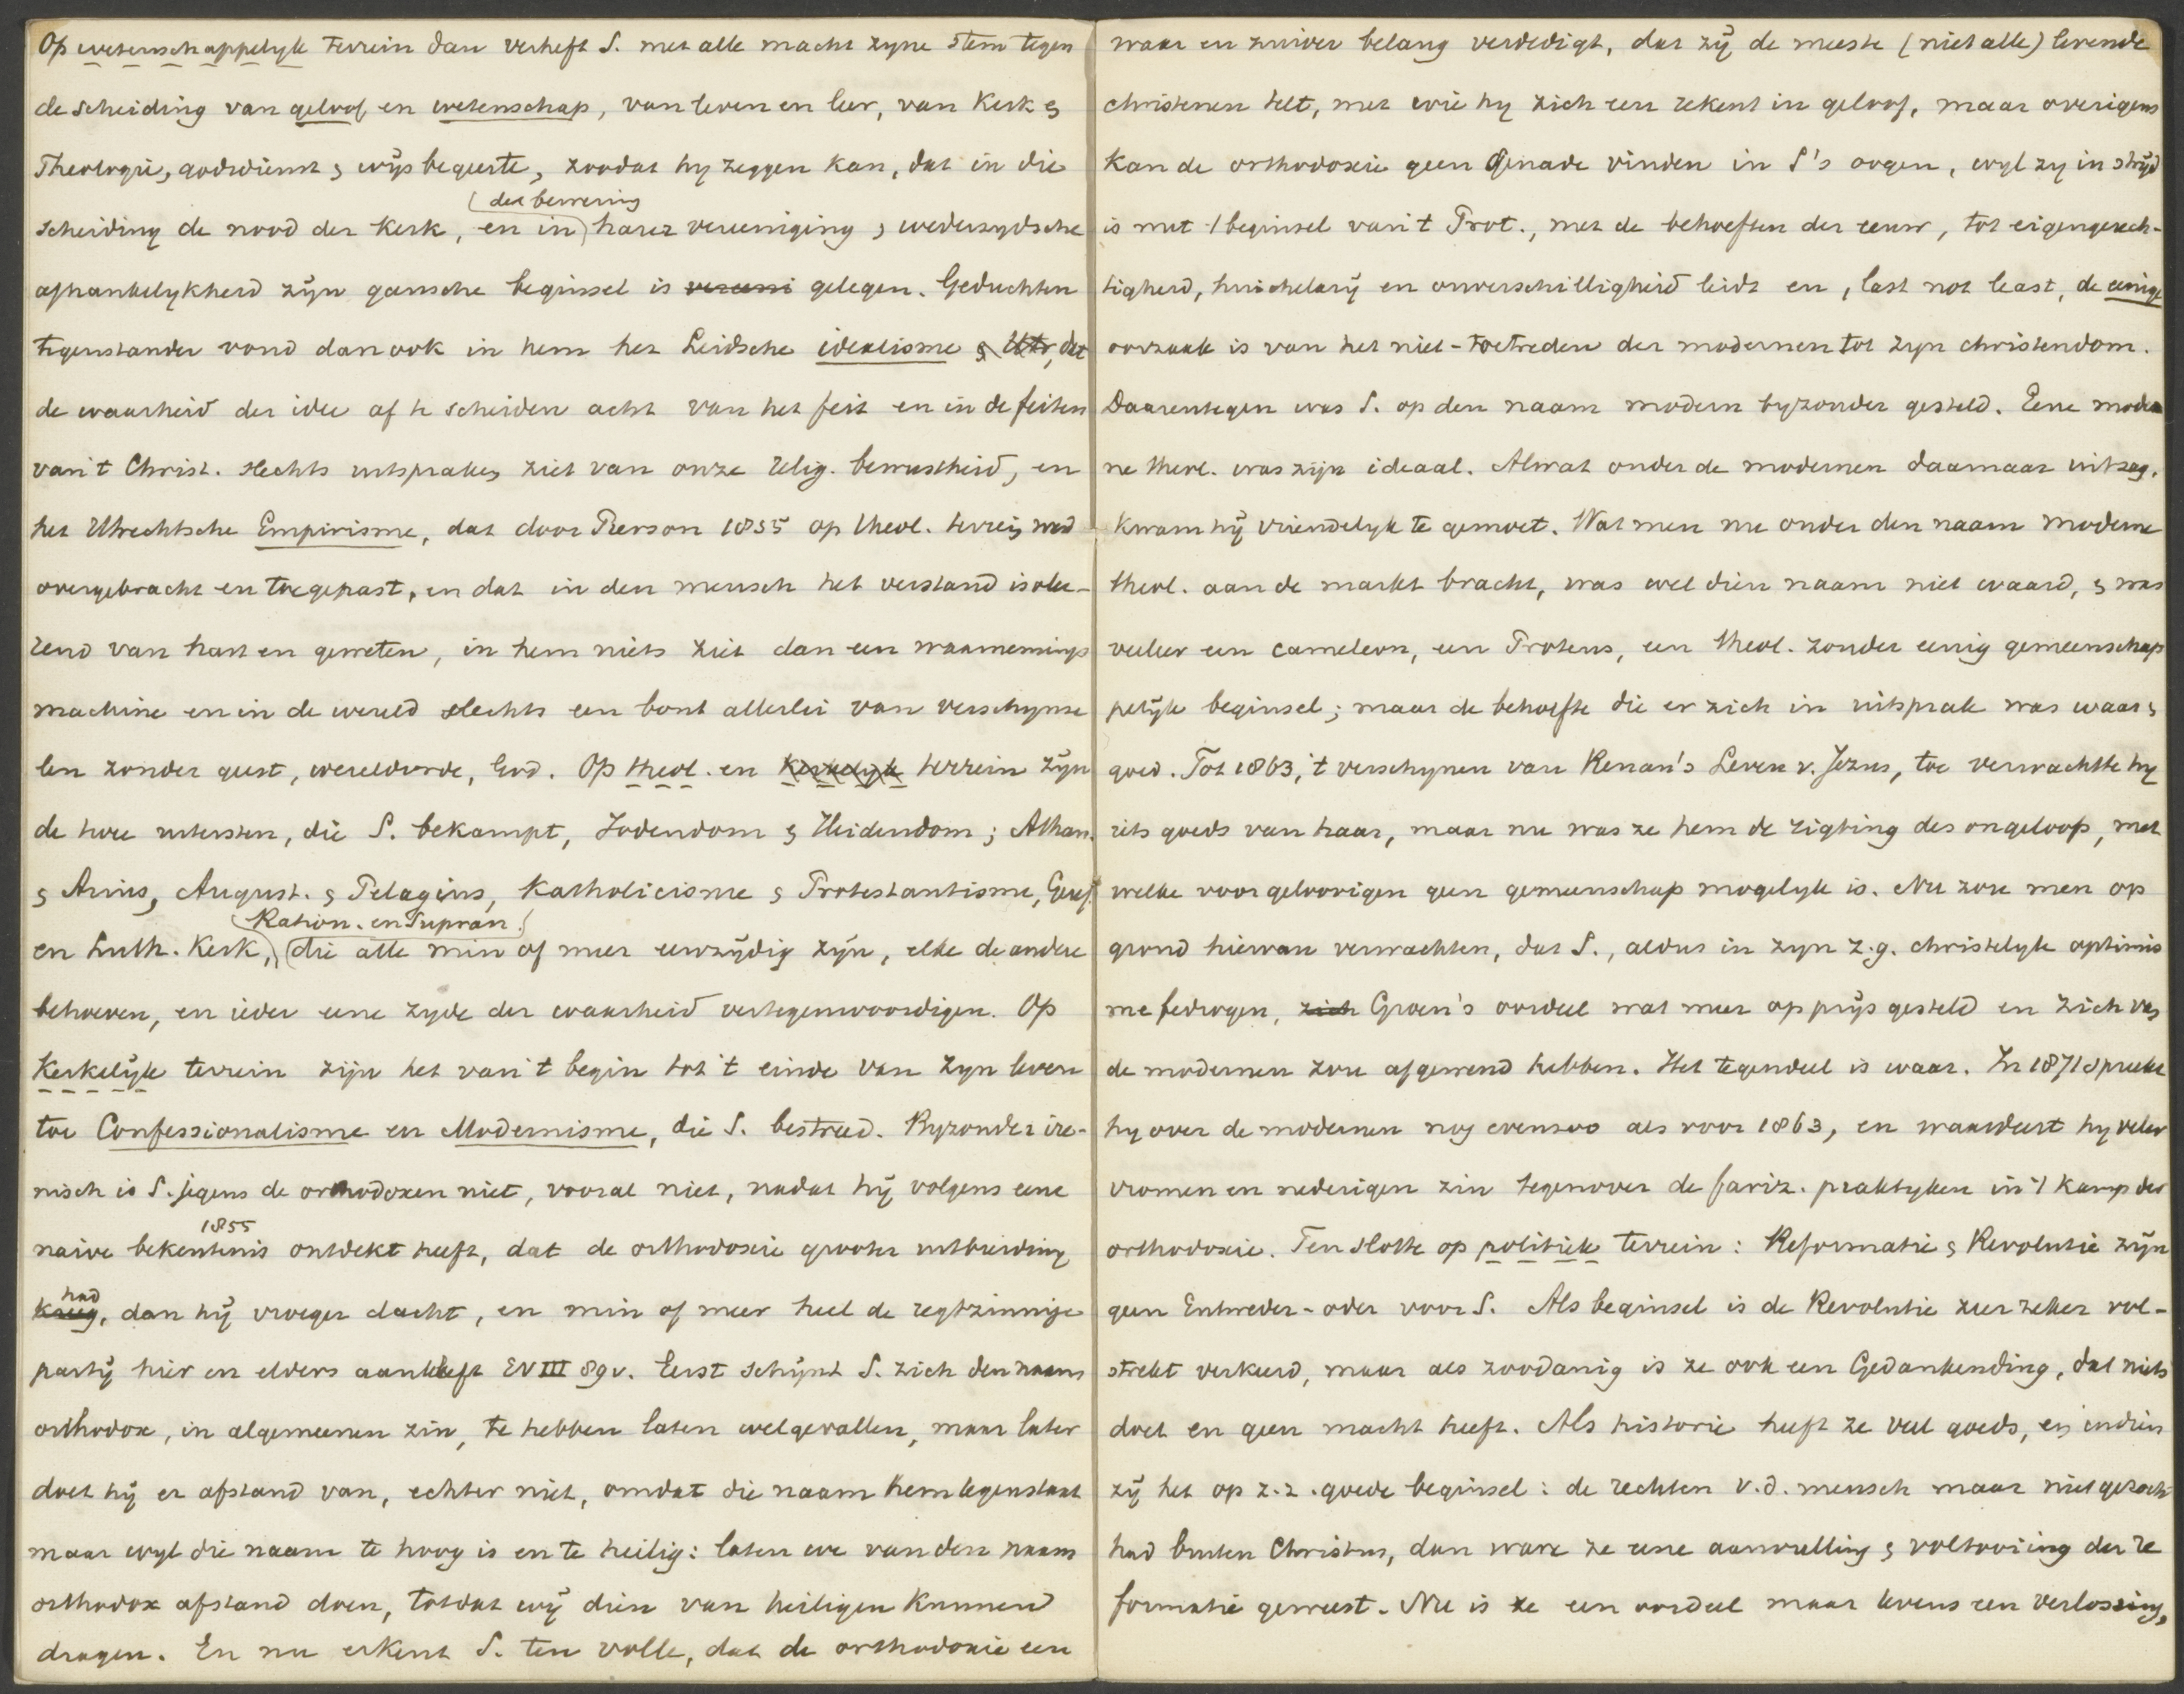 Op wetenschappelyk terrein dan verheft S. met alle macht zyne stem tegen
de scheiding van geloof en wetenschap, van leven en leer, van Kerk &
Theologie, godsdienst & wijsbegeerte, zoodat hy zeggen kan, dat in die
(der bewering
scheiding de nood der Kerk, en in) harer vereeniging & wederzydsche
afhankelykheid zyn gansche beginsel is vereeni gelegen. Geduchten
tegenstander vond dan ook in hem het Leidsche idealisme & Utr, dat
de waarheid der idee af te scheiden acht van het feit en in de feiten
van 't Christ. slechts uitspraken ziet van onze relig. bewustheid, en
het Utrechtsche Empirisme, dat door Pierson 1855 op theol. terrein werd
overgebracht en toegepast, en dat in den mensch het verstand isolee-
rend van hart en geweten, in hem niets ziet dan een waarnemings
machine en in de wereld slechts een bont allerlei van verschynse
len zonder geest, wereldorde, God. Op theol. en Kerkelyk terrein zyn
de twee uitersten, die S. bekampt, Jodendom & Heidendom; Athan.
& Arius, August. & Pelagius, Katholicisme & Protestantisme, Geref.
(Ration. en Supran.)
en Luth. Kerk, (die alle min of meer eenzydig zyn, elke de andere
behoeven, en ieder eene zyde der waarheid vertegenwoordigen. Op
Kerkelyk terrein zijn het van 't begin tot 't einde van zyn leven
toe Confessionalisme en Modernisme, die S. bestreed. Byzonder ire-
nisch is S. jegens de orthodoxen niet, vooral niet, nadat hij volgens eene
1855
naive bekentenis ontdekt heeft, dat de orthodoxie grooter uitbreiding
had
kreeg, dan hij vroeger dacht, en min of meer heel de regtzinnige
party hier en elders aankleeft EV III 89v. Eerst schijnt S. zich den naam
orthodox, in algemeenen zin, te hebben laten welgevallen, maar later
doet hij er afstand van, echter niet, omdat die naam hem tegenstaat
maar wyl die naam te hoog is en te heilig: laten we van den naam
orthodox afstand doen, totdat wij dien van heiligen kunnen
dragen. En nu erkent S. ten volle, dat de orthodoxie een
waar en zuiver belang verdedigt, dat zij de meeste (niet alle) levende
christenen telt, met wie hy zich een rekent in geloof, maar overigens
kan de orthodoxie geen genade vinden in S's oogen, wyl zy in stryd
is met 't beginsel van 't Prot., met de behoeften der eeuw, tot eigengerech-
tigheid, huichelary en onverschilligheid leidt en, last not least, de eenige
oorzaak is van het niet-toetreden der modernen tot zyn christendom.
Daarentegen was S. op den naam modern byzonder gesteld. Eene moder
ne theol. was zijn ideaal. Alwat onder de modernen daarnaar uitzag,
kwam hij vriendelyk te gemoet. Wat men nu onder den naam moderne
theol. aan de markt bracht, was wel dien naam niet waard, & was
veeleer een cameleon, een Proteus, een theol. zonder eenig gemeenschap
pelyk beginsel; maar de behoefte die er zich in uitsprak was waar &
goed. Tot 1863, 't verschynen van Renan's Leven v. Jezus, toe verwachtte hy
iets goeds van haar, maar nu was ze hem de rigting des ongeloofs, met
welke voor geloovigen geen gemeenschap mogelyk is. Nu zou men op
grond hiervan verwachten, dat S., aldus in zyn z.g. christelyk optimis
me bedrogen, zich Groen's oordeel wat meer op prijs gesteld en zich van
de modernen zou afgewend hebben. Het tegendeel is waar. In 1871 spreekt
hy over de modernen nog evenzoo als voor 1863, en waardeert hy veler
vromen en nederigen zin tegenover de fariz. praktyken in 't kamp der
orthodoxie. Ten slotte op politiek terrein: Reformatie & Revolutie zijn
geen Entweder-oder voor S. Als beginsel is de Revolutie zeer zeker vol-
strekt verkeerd, maar als zoodanig is ze ook een Gedankending, dat niets
doet en geen macht heeft. Als historie heeft ze veel goeds, en indien
zij het op z.z. goede beginsel: de rechten v.d. mensch maar niet gezocht
had buiten Christus, dan ware ze eene aanvulling & voltooiing der Re
formatie geweest. Nu is ze een oordeel maar tevens een verlossing,